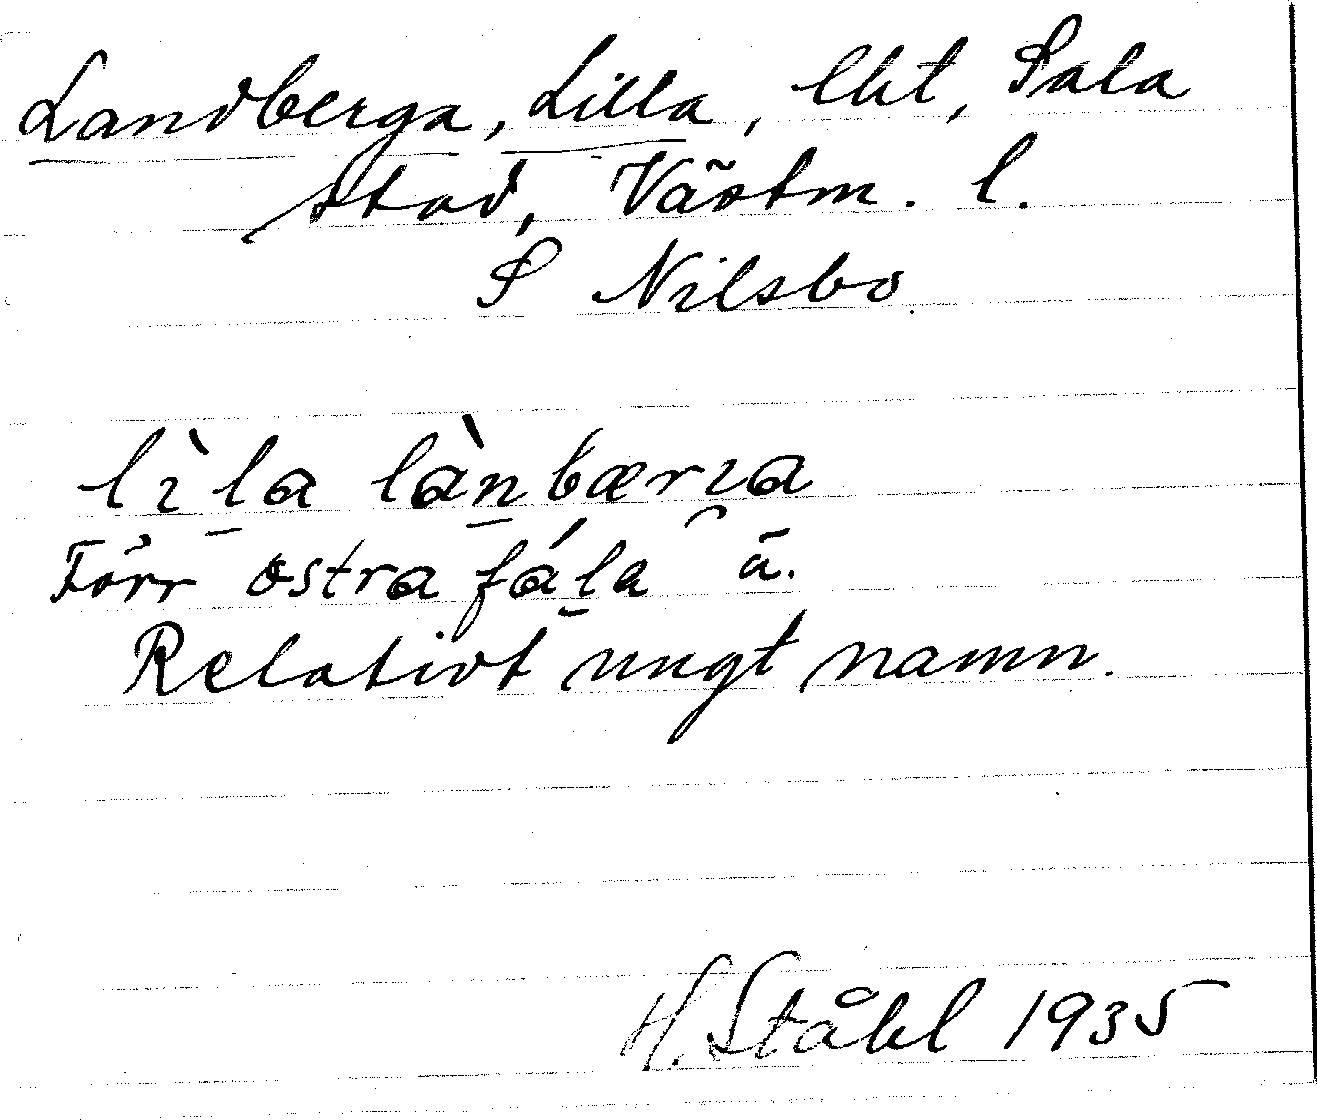 Landberga, Lilla, lht, Sala
stad, Västm. l.
S Nilsbo
lìla lànbærıa
Förr östra fála ä.
Relativt ungt namn.
H. Ståhl 1935